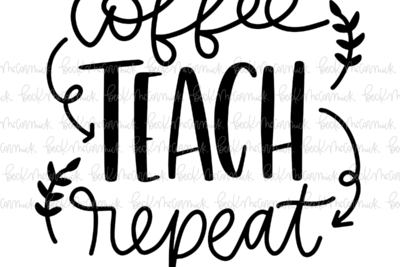 coffee
TEACH
repeat